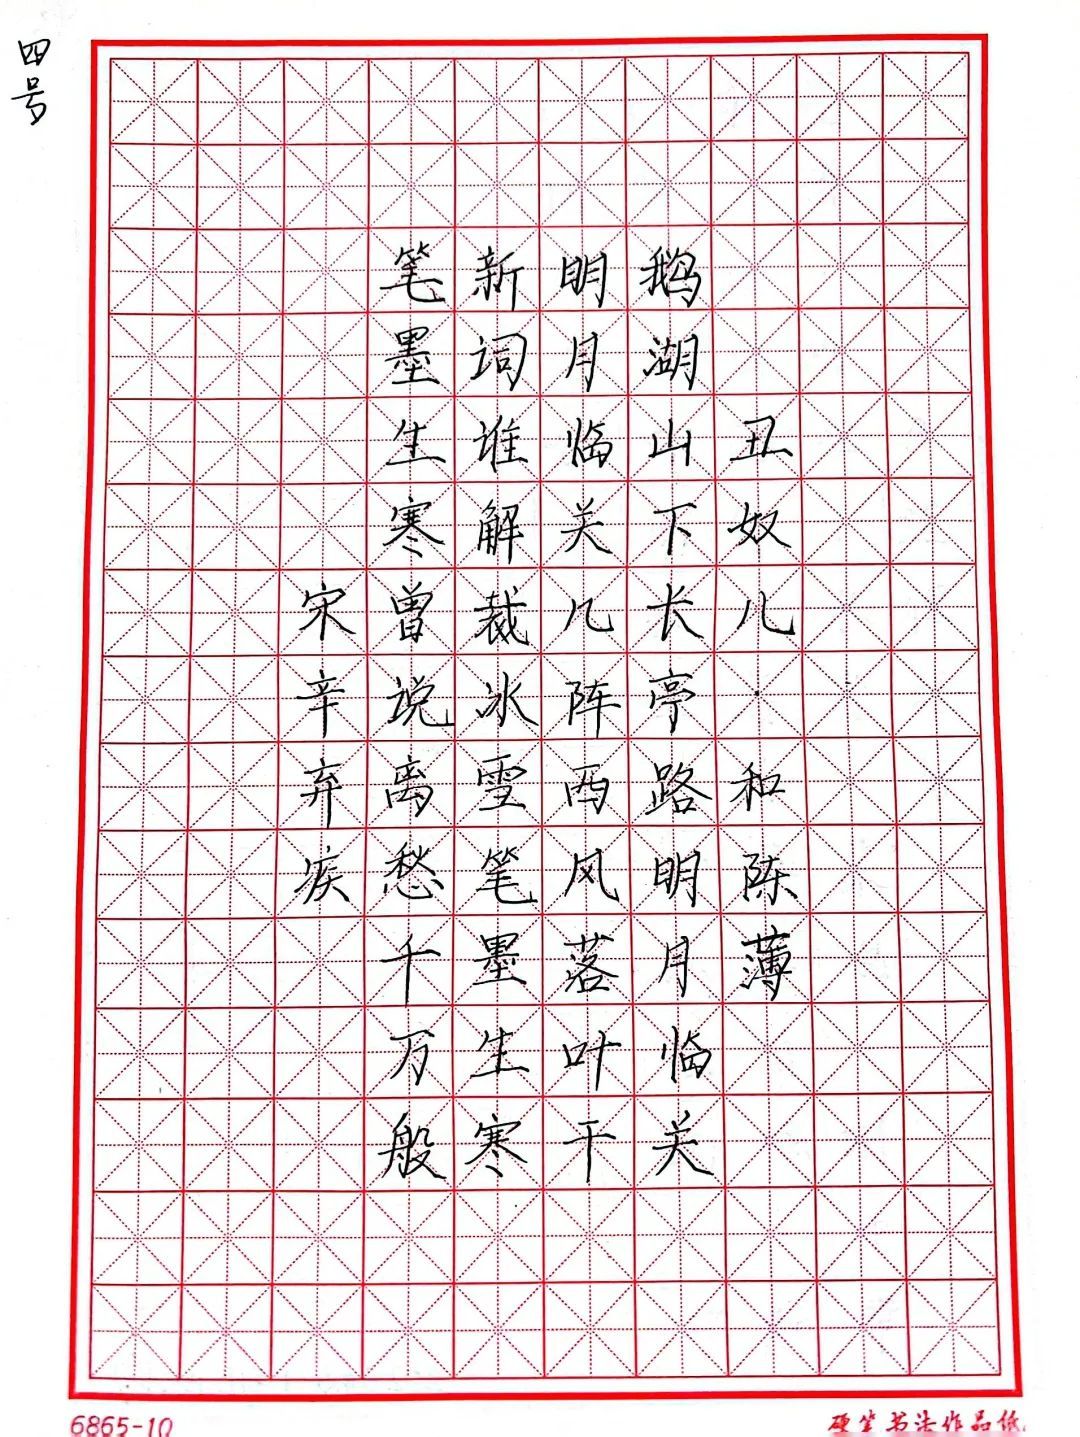 四号
丑奴儿·和陈薄
鹅湖山下长亭路明月临关
明月临关几阵西风落叶干
新词谁解裁冰雪笔墨生寒
笔墨生寒曾说离愁千万般
宋辛弃疾
6865-10
硬笔书法作品纸